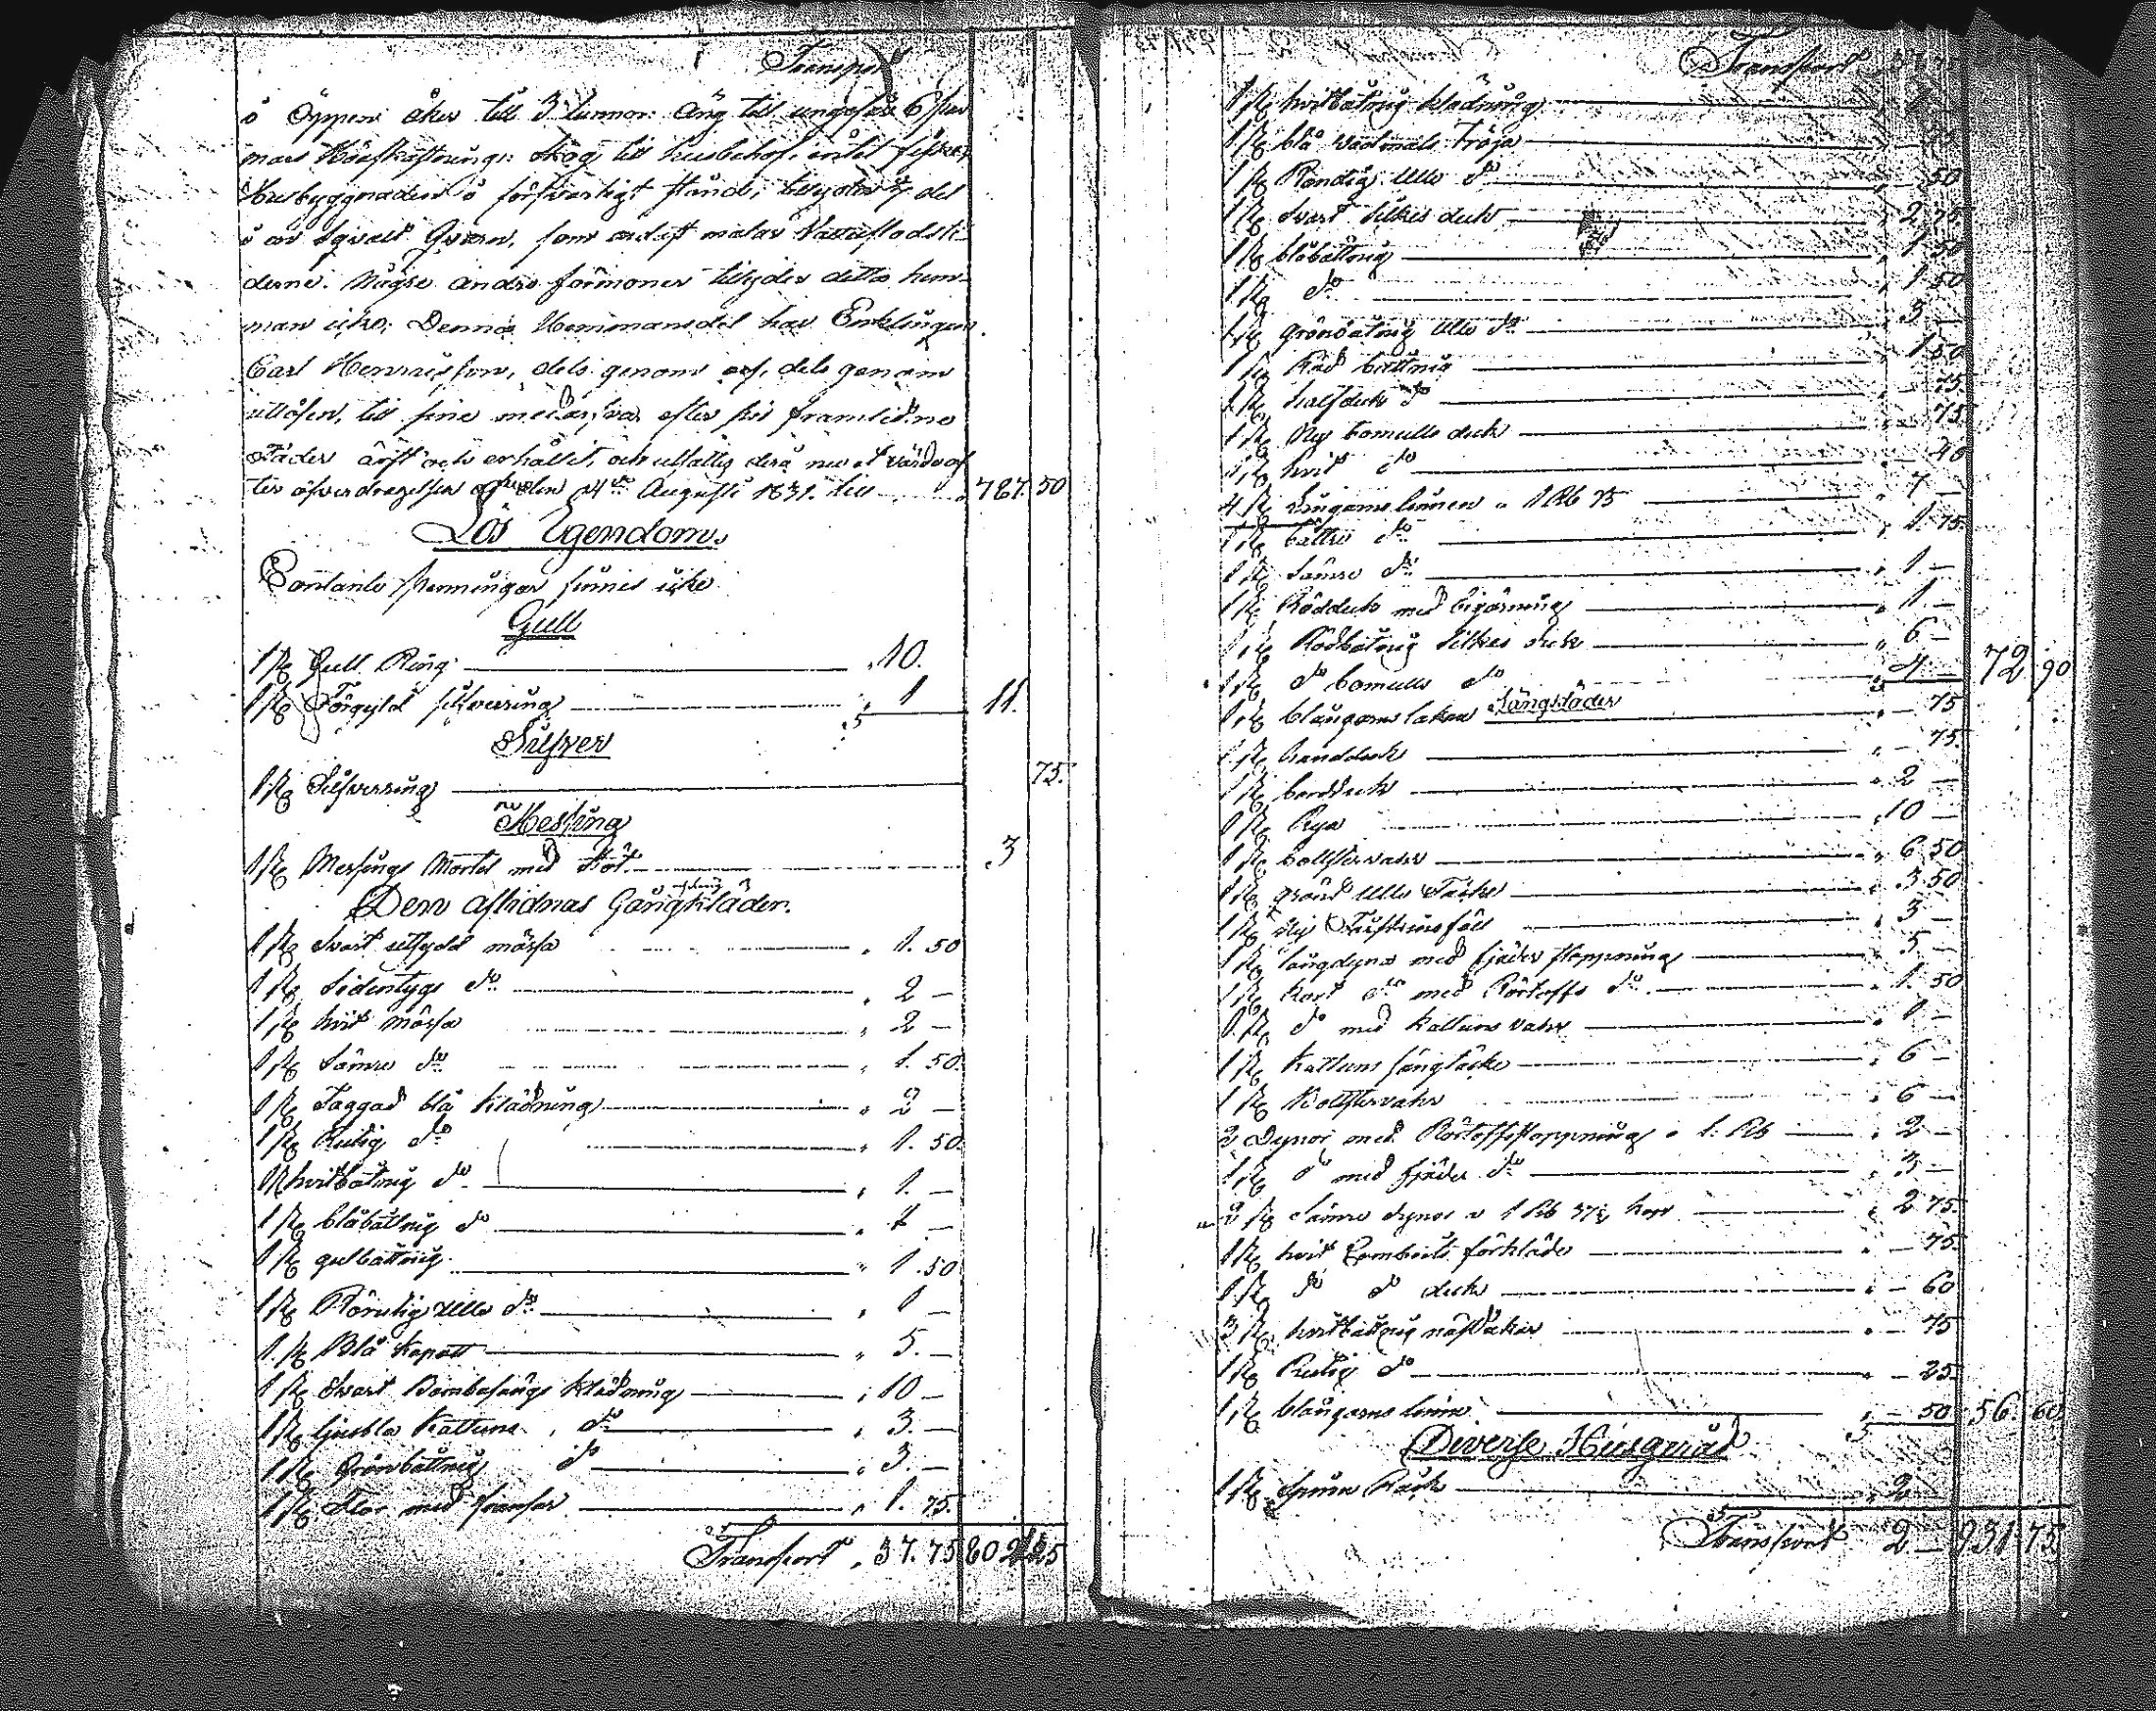 Transport
i Öppen åker till 3 tunnor. Äng till ungefär 6 par
mars Höafkastning: skog till husbehof, intet fiske,
Husbyggnaden i försvarligt stånd, till del
i en Qvarn, som endast malar Vattuflodsti-
derne. Några andra förmoner tilhyder detta hem-
man icke; Denna Hemmansdel har Enklingen
Carl Henricsson, dels genom arf, dels genom
utlösen, till sine medarfvar efter sin framlidne
Fader ärft och erhållit, och utsättes desä nu et värde ef-
ter öfverdragelsen den 24de Augusti 1831. till 787. 50
Lös Egendom.
Contante penningar finnes icke
Gull
1 st Gull Ring „ 10.
1 st Förgyld silfverring „ 1 11.
Silfver
1 st Silfverring 75.
Messing
1 st Messings Mortel med Stöt 3
Den Aflidnas Gångkläder.
1 st Svart utsydd mössa „ 1. 50
1 st Sidentygs do „ 2 —
1 st hvit mössa „ 2 —
1 st Sämre do „ 1. 50.
1 st Taggad blå Klädning „ 2 —
1 st Rutig do „ 1. 50.
1 st hvitbåtnig do „ 1. —
1 st blåbåtnig do „ 1 —
1 st gulbåttnig „ 1. 50
1 st Rörutig ulls do „ 1 —
1. st Blå Kapott „ 5. —
1 st Svart Bombasangs Klädning „ 10 —
1 st ljusbla Kattuns do „ 3. —
1 st Grönbåttnig do „ 3. —
1 st Flor med fransar „ 1. 75.
Transport „ 37. 75 802 25
Transport 37 75
1 st hvitbåtnig klädning
1 st blå Vadmals Tröja „ — 75
1 st Randig Ulls do „ — 50
1 st Svart Silkes duk „ 2 75
1 st blåbåttnig „ 1 50
1 st do „ 1 50
1 st grönbåtnig Ulls do „ 3 —
1 st Röd båttnig „ 1 50
1 st halfduk do „ — 75.
1 st Ny bomulls duk „ — 75
1 st hvit do „ — 40
4 st Lingarns linnen a 1 Rb 75 „ 7 —
1 st bättre do „ 1. 75.
1 st Sämre do „ 1. —
1 st Rödduk med bigärning „ 1. —
1 st Rödbåtnig Silkes duk „ 6 —
1 st do bomulls do „ 4 — 72 90
Sängkläder
1 st blångarns lakan „ — 75
1 st handduk „ — 75.
1 st bordduk „ 2 —
1 st Rya „ 10 —
1 st bolstervahr „ 6 50
1 st grönt Ulls Täcke „ 3 50
1 st ny Fårskinsfäll „ 3 —
1 st långdyna med fjäder stoppning „ 5 —
1 st kort do med Rörtoffs do „ 1. 50
1 st do med Kattuns vahr „ 1 —
1 st Kattuns sängtäcke „ 6 —
1 st Bolstervahr „ 6 —
2 Dynor med Rörtoffsstoppning a 1. Rb „ 2 —
1 st do med fjäder do „ 3 —
2 st Sämre dynor a 1 Rb 37½ kop „ 2 75
1 st hvit Cambriks förkläde „ — 75.
1 st do do duk „ — 60
3 st hvitbåttnig näsdukar „ — 75
1 st Rutig do „ — 25
1 st blångarns linne „ — 50 56. 60
Diverse Husgeråd
1 st Spinn Råck „ 2
Transport 2 — 931 75